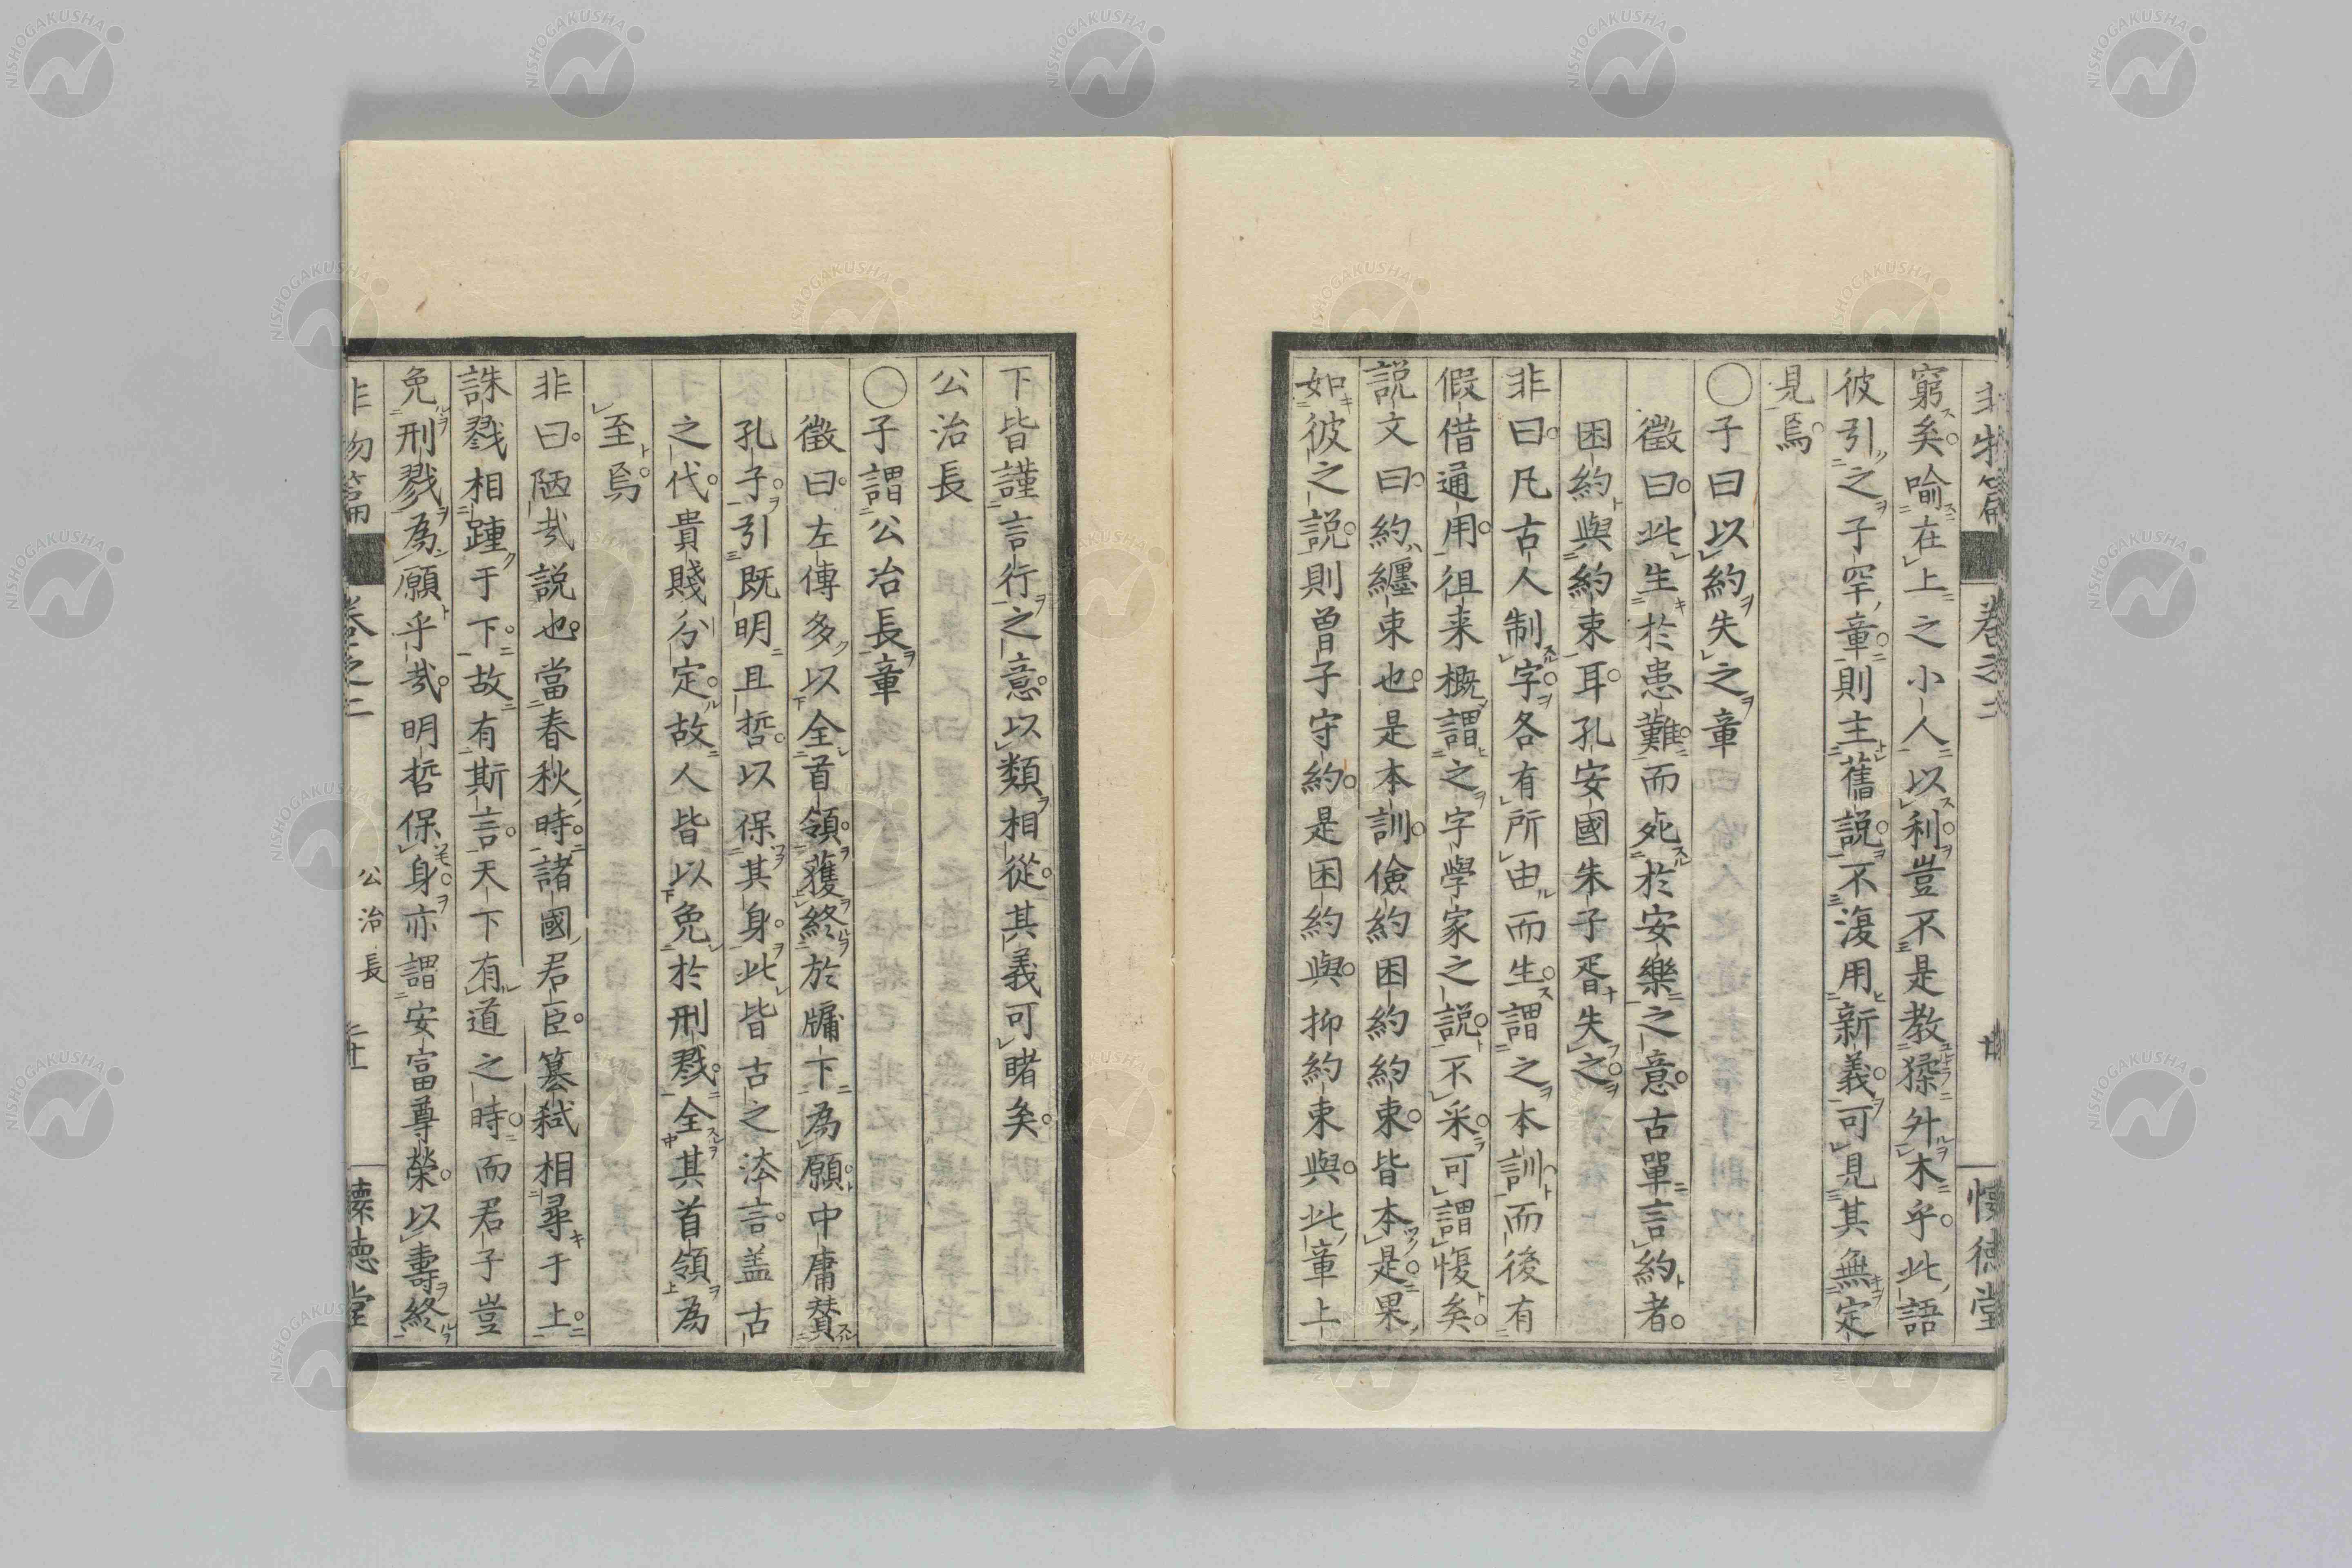 非物篇 卷之二 懐徳堂
窮矣喻在上之小人以利豈不是教猱升木乎此語
彼引之子罕章則主舊説不復用新義可見其無定
見焉
○子曰以約失之章
徵曰此生於患難而死於安樂之意古單言約者
困約與約束耳孔安國朱子胥失之
非曰凡古人制字各有所由而生謂之本訓而後有
假借通用徂来概謂之字學家之説不采可謂愎矣
説文曰約纏束也是本訓儉約困約約束皆本是果
如彼之説則曽子守約是困約與抑約束與此章上
下皆謹言行之意以類相從其義可睹矣
公冶長
○子謂公冶長章
徵曰左傳多以全首領獲終於牖下為願中庸賛
孔子引既明且哲以保其身此皆古之法言盖古
之代貴賤分定故人皆以免於刑戮全其首領為
至焉
非曰陋哉説也當春秋時諸國君臣簒弑相尋于上
誅戮相踵于下故有斯言天下有道之時而君子豈
免刑戮為願乎哉明哲保身亦謂安富尊榮以壽終
非物篇 卷之二 公冶長 懐徳堂
NISHOGAKUSHA